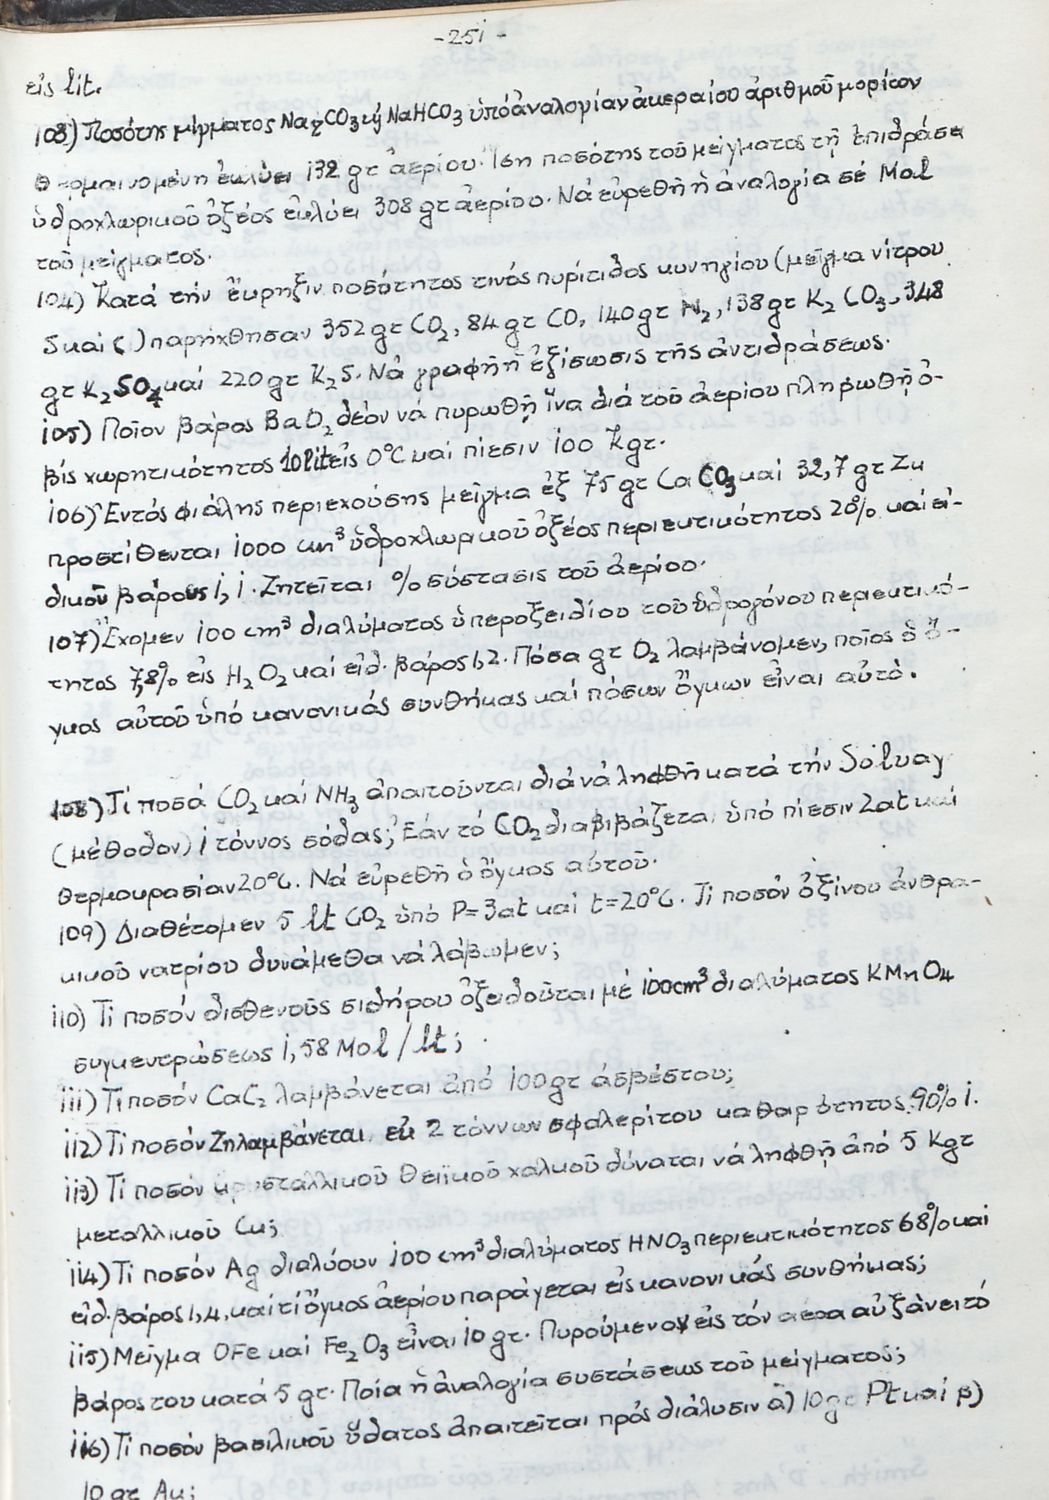 -251-
εἰς lit.
103) Ποσότης μίγματος Na2CO3 καί NaHCO3 ὑπό ἀναλογίαν ἀκεραίου ἀριθμοῦ μορίων
θερμαινομένη ἐκλύει 132 gt ἀερίου. Ἴση ποσότης τοῦ μείγματος τῇ ἐπιδράσει
ὑδροχλωρικοῦ ὀξέος ἐκλύει 308 gt ἀερίου. Νά εὑρεθῇ ἡ ἀναλογία σέ Mol
τοῦ μείγματος.
104) Κατά τήν ἔκρηξιν ποσότητος τινός πυρίτιδος κυνηγίου (μεῖγμα νίτρου
S καί C) παρήχθησαν 352 gt CO2, 84 gt CO, 140 gt N2, 138 gt K2CO3, 348
gt K2SO4 καί 220 gt K2S. Νά γραφῇ ἡ ἐξίσωσις τῆς ἀντιδράσεως.
105) Ποῖον βάρος BaO2 δέον νά πυρωθῇ ἵνα διά τοῦ ἀερίου πληρωθῇ ὀ-
βίς χωρητικότητος 10 lit εἰς 0°C καί πίεσιν 100 Kgt.
106) Ἐντός φιάλης περιεχούσης μεῖγμα ἐξ 75 gt CaCO3 καί 32,7 gt Zn
προστίθενται 1000 cm³ ὑδροχλωρικοῦ ὀξέος περιεκτικότητος 20% καί εἰ-
δικοῦ βάρους 1,1. Ζητεῖται % σύστασις τοῦ ἀερίου.
107) Ἔχομεν 100 cm³ διαλύματος ὑπεροξειδίου τοῦ ὑδρογόνου περιεκτικό-
τητος 7,8% εἰς H2O2 καί εἰδ. βάρος 1,2. Πόσα gt O2 λαμβάνομεν, ποῖος ὁ ὄ-
γκος αὐτοῦ ὑπό κανονικάς συνθήκας καί πόσων ὄγκων εἶναι αὐτό.
108) Τί ποσά CO2 καί NH3 ἀπαιτοῦνται διά νά ληφθῇ κατά τήν Solvay
(μέθοδον) 1 τόννος σόδας; Ἐάν τό CO2 διαβιβάζεται ὑπό πίεσιν 2at καί
θερμοκρασίαν 20°C. Νά εὑρεθῇ ὁ ὄγκος αὐτοῦ.
109) Διαθέτομεν 5 lt CO2 ὑπό P=3at καί t=20°C. Τί ποσόν ὀξίνου ἀνθρα-
κικοῦ νατρίου δυνάμεθα νά λάβωμεν;
110) Τί ποσόν δισθενοῦς σιδήρου ὀξειδοῦται μέ 100cm³ διαλύματος KMnO4
συγκεντρώσεως 1,58 Mol/lt;
111) Τί ποσόν CaC2 λαμβάνεται ἀπό 100gt ἀσβέστου;
112) Τί ποσόν Zn λαμβάνεται ἐκ 2 τόννων σφαλερίτου καθαρότητος 90%.
113) Τί ποσόν κρυσταλλικοῦ θειϊκοῦ χαλκοῦ δύναται νά ληφθῇ ἀπό 5 Kgt
μεταλλικοῦ Cu;
114) Τί ποσόν Ag διαλύουν 100 cm³ διαλύματος HNO3 περιεκτικότητος 68% καί
εἰδ. βάρος 1,4, καί τί ὄγκος ἀερίου παράγεται εἰς κανονικάς συνθήκας;
115) Μεῖγμα OFe καί Fe2O3 εἶναι 10 gt. Πυρούμενον εἰς τόν αέρα αὐξάνει τό
βάρος του κατά 5 gt. Ποία ἡ ἀναλογία συστάσεως τοῦ μείγματος;
116) Τί ποσόν βασιλικοῦ ὕδατος ἀπαιτεῖται πρός διάλυσιν α) 10 gt Pt καί β)
10 gt Au;